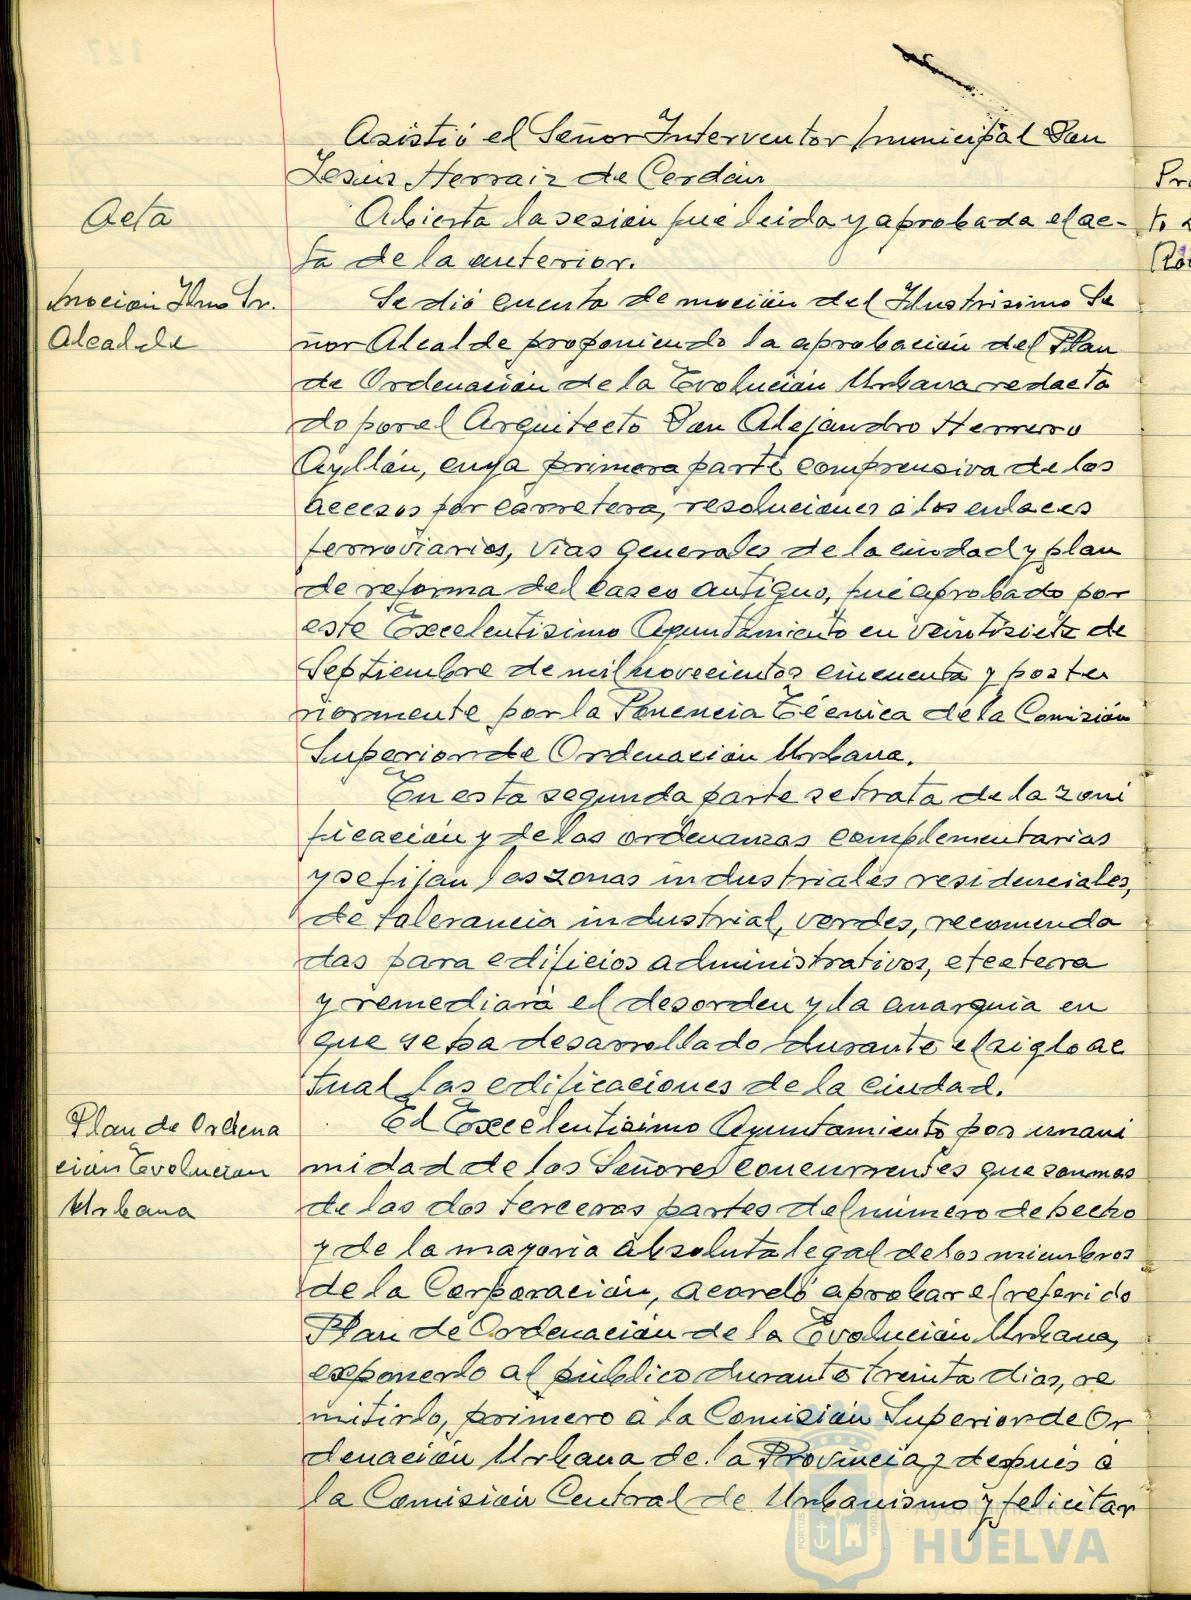 Asistió el Señor Interventor Municipal Don
Jesús Herraiz de Cerdán
Acta
Abierta la sesión fué leida y aprobada el ac-
ta de la anterior.
Moción Ilmo Sr.
Alcalde
Se dió cuenta de moción del Ilustrisimo Se
ñor Alcalde proponiendo la aprobación del Plan
de Ordenación de la Evolución Urbana redacta
do por el Arquitecto Don Alejandro Herrero
Ayllón, cuya primera parte comprensiva de los
accesos por carretera, resoluciones a los enlaces
ferroviarios, vias generales de la ciudad y plan
de reforma del casco antiguo, fué aprobado por
este Excelentisimo Ayuntamiento en veintisiete de
Septiembre de mil novecientos cincuenta y poste
riormente por la Ponencia Técnica de la Comisión
Superior de Ordenación Urbana.
En esta segunda parte se trata de la zoni
ficación y de las ordenanzas complementarias
y se fijan las zonas industriales residenciales,
de tolerancia industrial, verdes, recomenda
das para edificios administrativos, etcetera
y remediará el desorden y la anarquia en
que se ha desarrollado durante el siglo ac
tual las edificaciones de la ciudad.
Plan de Ordena
ción Evolución
Urbana
El Excelentisimo Ayuntamiento por unani
midad de los Señores concurrentes que son mas
de las dos terceras partes del número de hecho
y de la mayoria absoluta legal de los miembros
de la Corporación, acordó aprobar el referido
Plan de Ordenación de la Evolución Urbana,
exponerlo al público durante treinta dias, re
mitirlo, primero a la Comisión Superior de Or
denación Urbana de la Provincia y después a
la Comisión Central de Urbanismo y felicitar
Ayuntamiento de
HUELVA